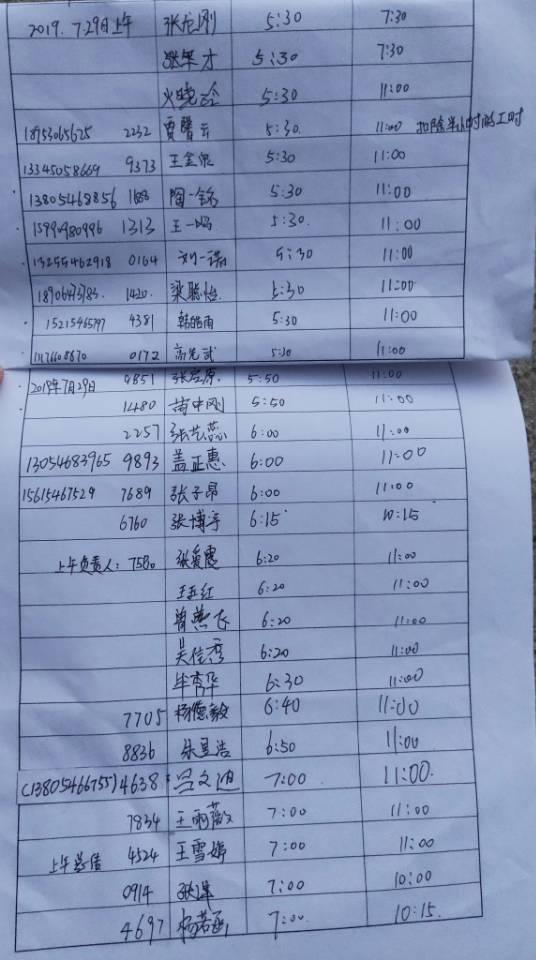 2019. 7.29日上午 张龙刚 5:30 7:30
5:30 7:30
火晓玲 5:30 11:00
18953065625 2232 贾馨云 5:30 11:00 扣除半小时的工时
13345058669 9373 王金泉 5:30 11:00
13805468856 1188 陶一铭 5:30 11:00
15990980996 1313 王一鸣 5:30 11:00
13255462918 0164 刘一诺 5:30 11:00
1420 梁聪怡 5:30 11:00
15215465797 4381 韩皓雨 5:30 11:00
0172 高光武 5:30 11:00
2019年7月29日 9851 5:50 11:00
1480 5:50 11:00
2257 张艺蕊 6:00 11:00
13054683965 9893 盖正惠 6:00 11:00
15615467529 7689 张子昂 6:00 11:00
6760 张博宇 6:15 10:15
上午负责人: 7580 张爱惠 6:20 11:00
王玉红 6:20 11:00
曾燕飞 6:20 11:00
吴佳秀 6:20 11:00
牟秀华 6:30 11:00
7705 杨德敏 6:40 11:00
8836 朱昱浩 6:50 11:00
(13805466755) 4638 吕文迪 7:00 11:00
7834 王雨薇 7:00 11:00
上午 4524 王雪婷 7:00 11:00
0914 7:00 10:00
4697 杨若函 7:00 10:15